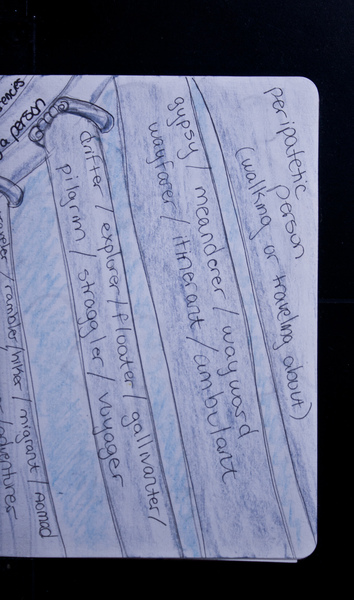 peripatetic person
(walking or traveling about)
gypsy / meanderer / wayward
wayfarer / itinerant / ambulant
drifter / explorer / floater / gallivanter/
pilgrim / straggler / voyager
/ rambler/hiker / migrant / nomad
a person